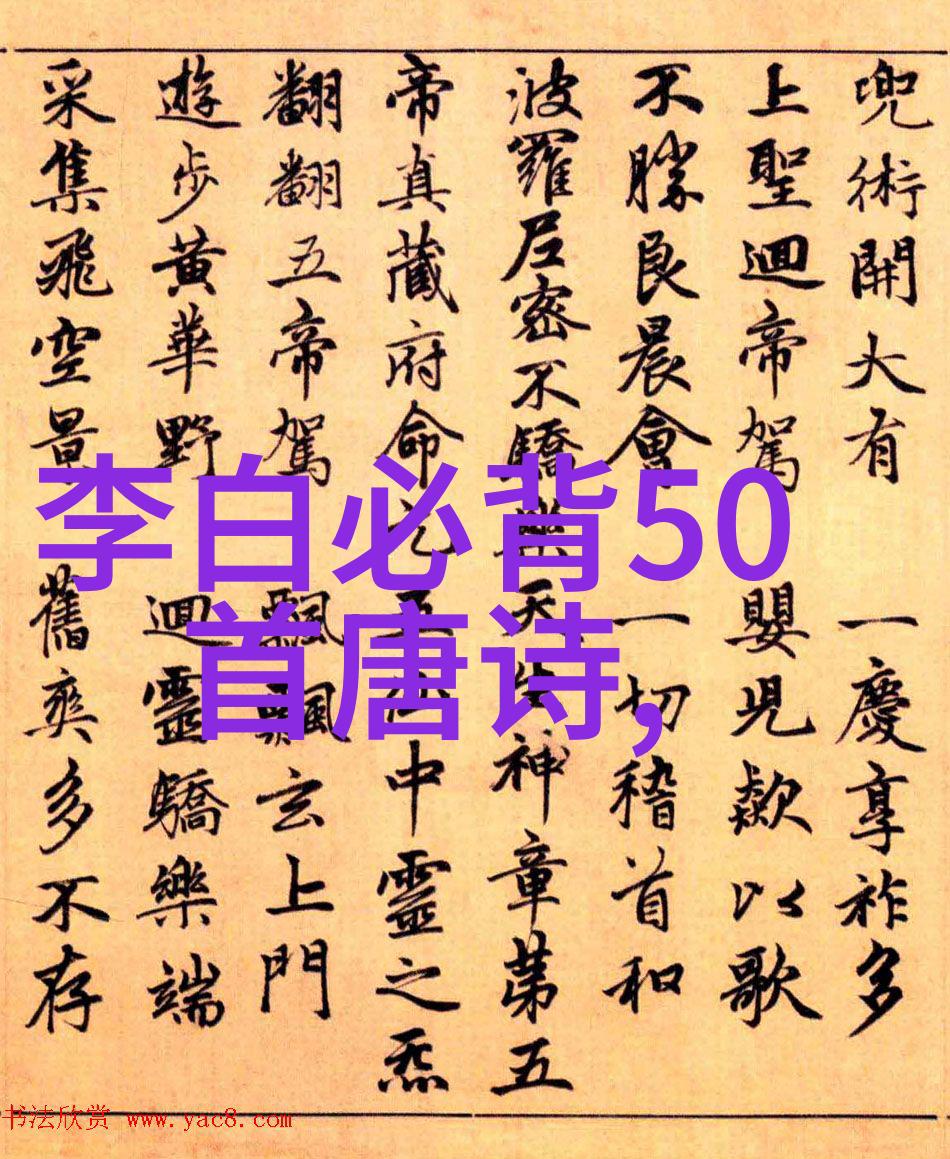 兜術開大有 一慶享祚多
上聖迴帝駕 嬰児欵以歌
不勝良晨會 一切稽首和
波羅尼密不驕樂天神章第五
帝真藏府命中靈之炁
翻翻五帝駕 飄飄玄上門
遊步黃華野 迴靈驕樂端
采集飛空景 舊爽多不存
李白必背50
首唐诗,
书法欣赏 www.yac8.com